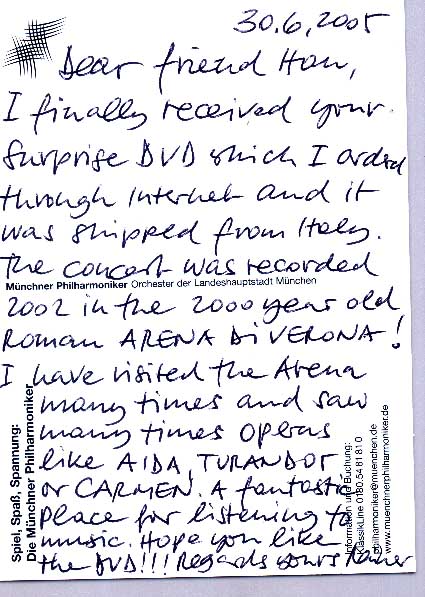 30.6.2005
Dear friend Han,
I finally received your
Surprise DVD which I orderd
through Internet and it
was shipped from Italy.
The concert was recorded
Münchner Philharmoniker Orchester der Landeshauptstadt München
2002 in the 2000 year old
Roman ARENA DI VERONA!
I have visited the Arena
many times and saw
many times Operas
like AIDA, TURANDOT
or CARMEN. A fantastic
place for listening to
music. Hope you like
the DVD!!! Regards yours Rainer
Spiel, Spaß, Spannung:
Die Münchner Philharmoniker
Information und Buchung:
KlassikLine 0180.54 81 81 0
philharmoniker@muenchen.de
www.muenchnerphilharmoniker.de